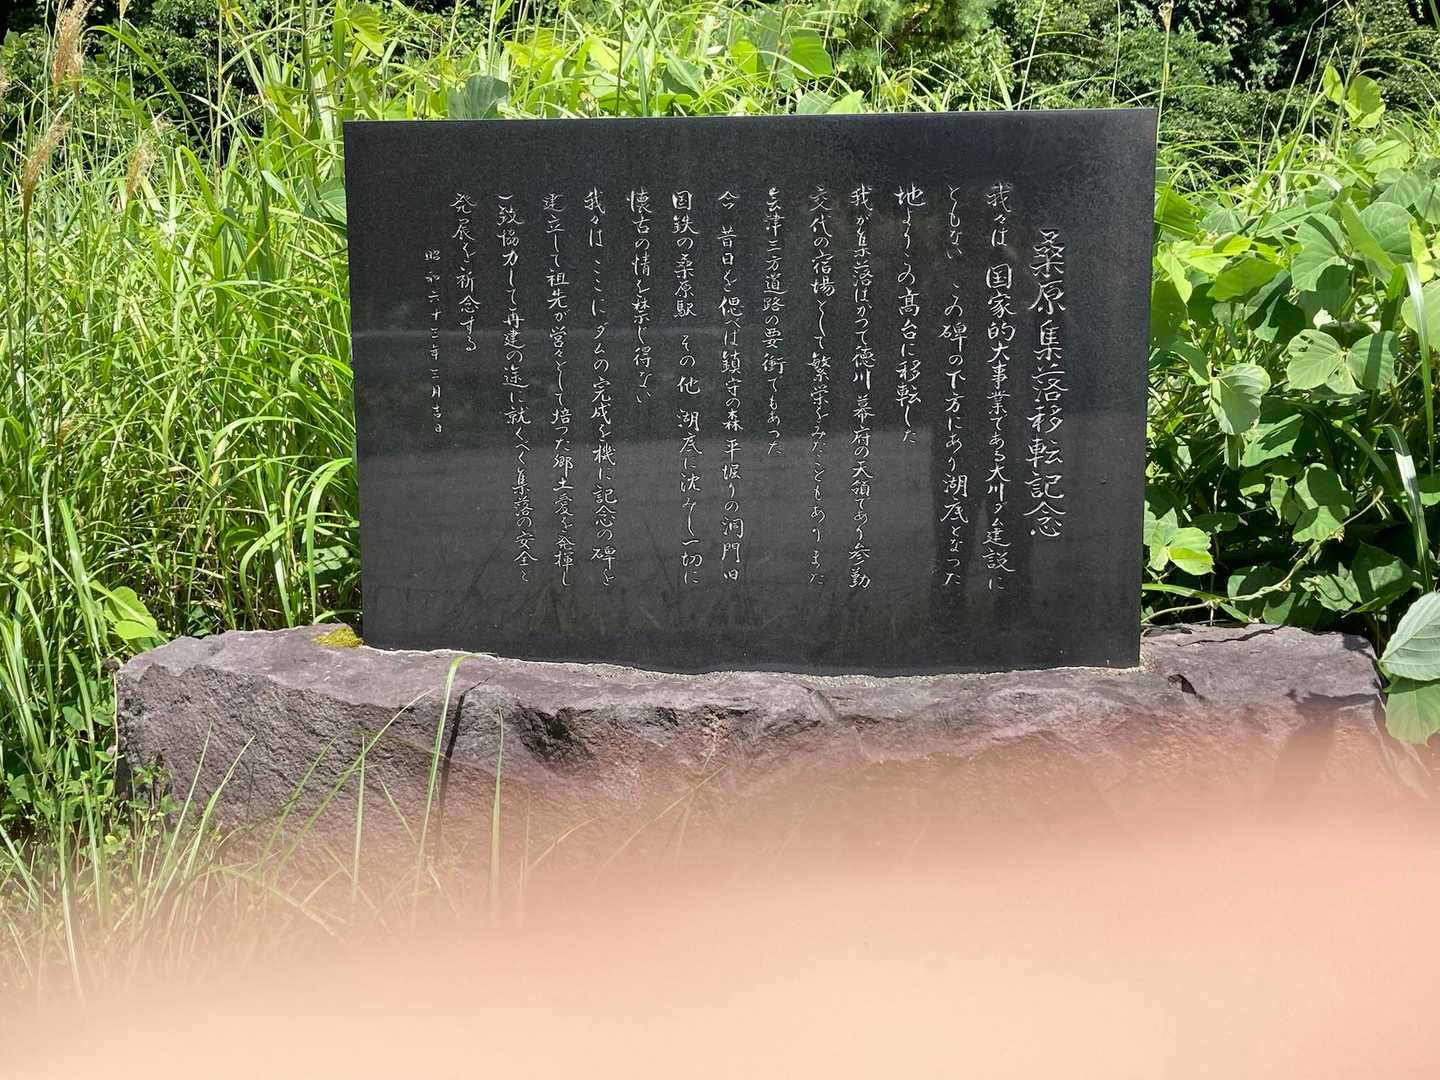 桑原集落移転記念
我々は 国家的大事業である大川ダム建設に
ともない この碑の下方にあり湖底となった
地よりこの高台に移転した
我が集落はかつて徳川幕府の天領であり参勤
交代の宿場として繁栄をみたこともありまた
会津三方道路の要衝でもあった
今 昔日を偲べば鎮守の森 平堀りの洞門 旧
国鉄の桑原駅 その他 湖底に沈みし一切に
懐古の情を禁じ得ない
我々は ここにダムの完成を機に記念の碑を
建立して祖先が営々として培った郷土愛を発揮し
一致協力して再建の途に就くべく集落の安全と
発展を祈念する
昭和六十三年三月吉日